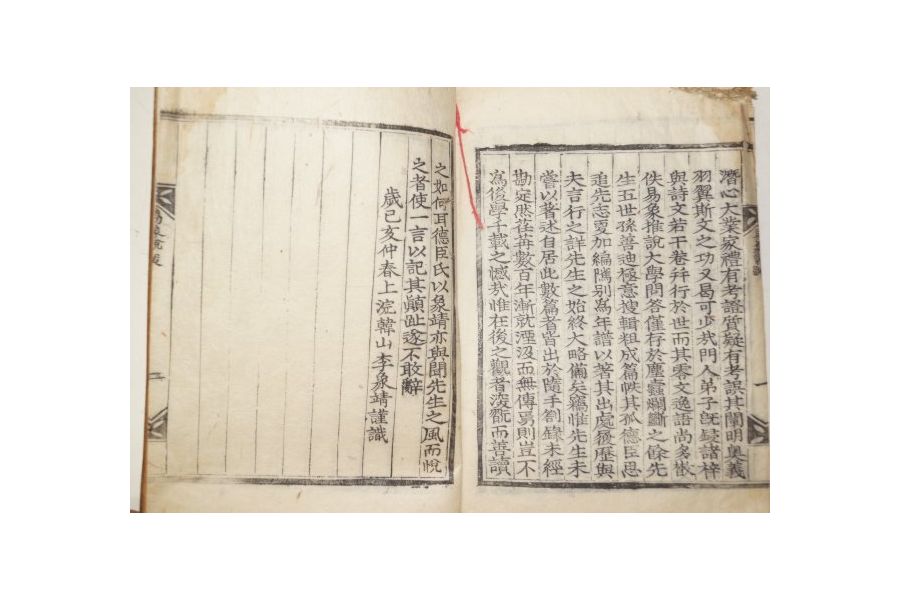 潛心大業家禮有考證質疑有考誤其闡明奧義
羽翼斯文之功又曷可少哉門人弟子旣鋟諸梓
與詩文若干卷幷行於世而其零文逸語尙多散
佚易象推說大學問答僅存於塵蠹爛斷之餘先
生五世孫善迪極意搜輯粗成篇帙其孤德臣思
追先志更加編隲別為年譜以著其出處履歷與
夫言行之詳先生之始終大略備矣竊惟先生未
嘗以著述自居此數篇者皆出於隨手劄錄未經
勘定然荏苒數百年漸就湮汲而無傳焉則豈不
為後學千載之憾哉惟在後之觀者淺翫而善讀
之如何耳德臣氏以象靖亦與聞先生之風而悅
之者使一言以記其顚趾遂不敢辭
歲己亥仲春上浣韓山李象靖謹識
易象說後
二
一